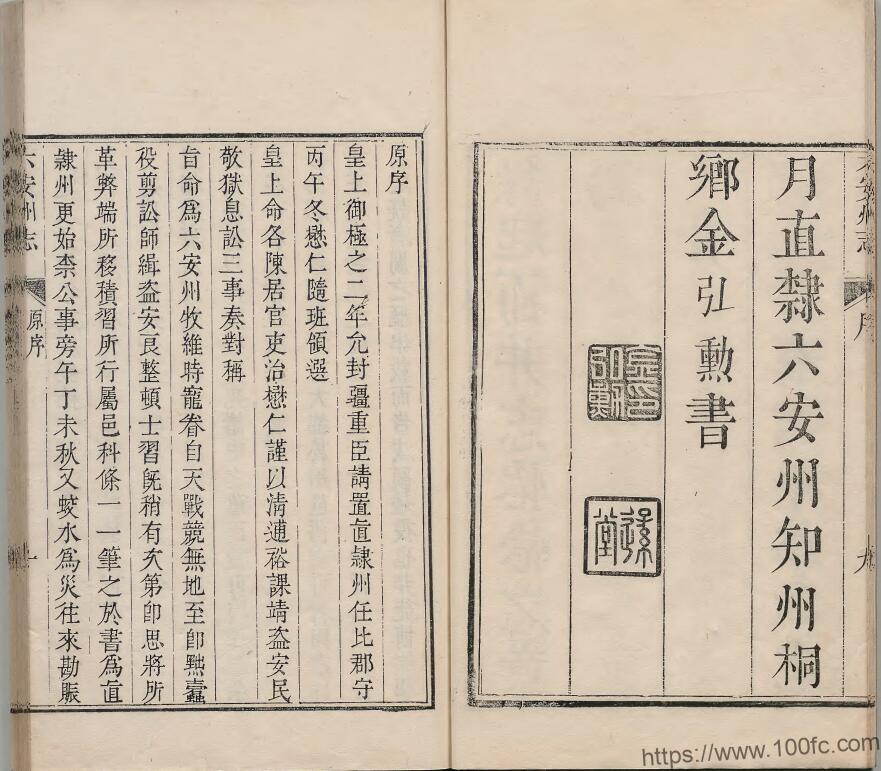 月直隷六安州知州桐
鄉金弘勲書
原序
皇上御極之二年允封疆重臣請置直隷州任比郡守
丙午冬懋仁隨班領選
皇上命各陳居官吏治懋仁謹以清逋裕課靖盜安民
敬獄息訟三事奏對稱
旨命爲六安州牧維時寵眷自天戰兢無地至卽黜蠹
役剪訟師緝盜安良整頓士習旣稍有次第卽思將所
革弊端所移積習所行屬邑科條一一筆之於書爲直
隷州更始柰公事旁午丁未秋又蛟水爲災往來勘賑
六安州志
原序
一
https://www.100fc.com